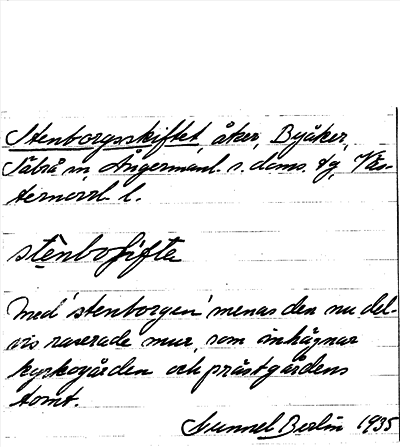 Stenborgsskiftet, åker, Byåker,
Säbrå sn, Ångermanl. s. doms. tg, Väs-
ternorrl. l.
stenboṣifta
Med 'stenborgen' menas den nu del-
vis raserade mur, som inhägnar
kyrkogården och prästgårdens
tomt.
Gunnel Berlin 1935